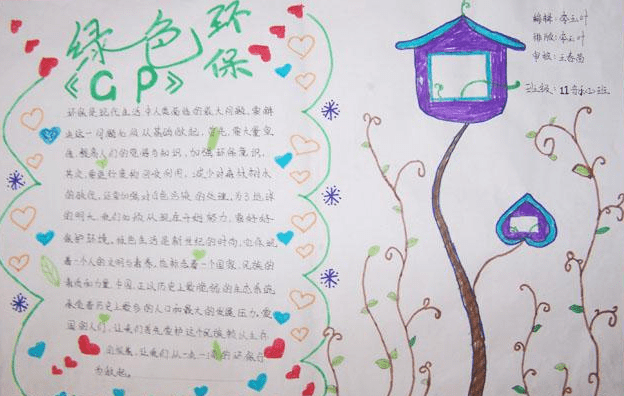 绿色环保
《GP》
编辑：李玉叶
排版：李玉叶
审核：王春苗
班级：11音乐班
环保是现代生活中人类面临的最大问题，要解
决这一问题必须从基础做起，首先，要大量宣
传，提高人们的觉悟与知识，加强环保意识，
其次，要进行废物回收利用，减少对森林树木
的砍伐，还要加强对白色污染的处理，为了地球
的明天，我们必须从现在开始努力，要好好
保护环境，绿色生活是新世纪的时尚，它体现
着一个人的文明与素养，也标志着一个国家、民族的
素质和力量，中国，正以历史上最脆弱的生态系统，
承受着历史上最多的人口和最大的发展压力，爱
国的人们，让我们首先爱护这个民族赖以生存
的家园，让我们从一点一滴的环保行
为做起。